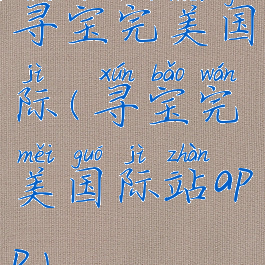 寻宝完美国
jì xún bǎo wán
际(寻宝完
měi guó jì zhàn
美国际站ap
p)